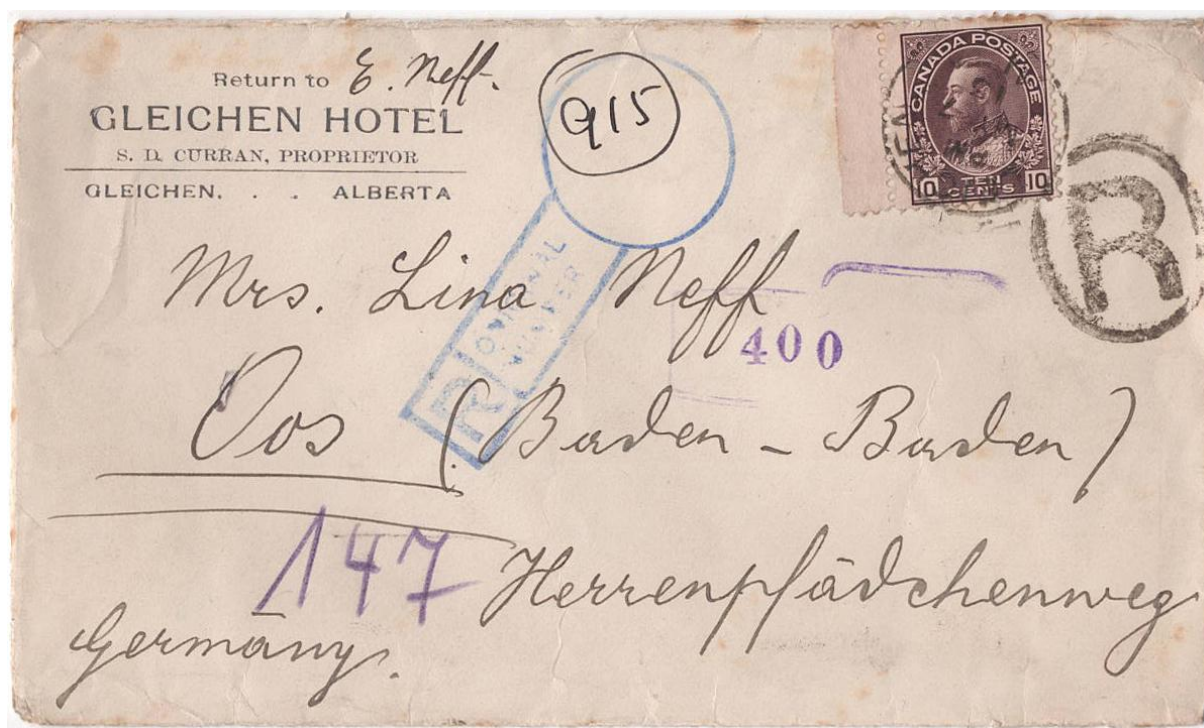 Return to E. Neff.
GLEICHEN HOTEL
S. D. CURRAN, PROPRIETOR
GLEICHEN, . . ALBERTA
915
CANADA POSTAGE
10 TEN CENTS 10
R
Mrs. Lina Neff
400
R ORIGINAL NUMBER
Oos (Baden-Baden)
147
Herrenpfädchenweg
Germany.